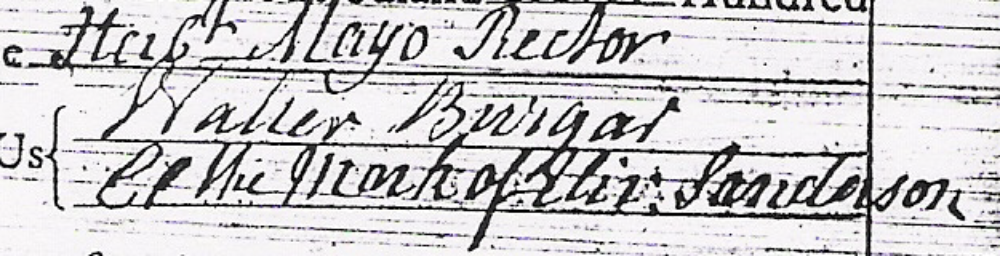 Hundred
Mayo Rector
Us Walter Burgar
the Mark of Eliz: Sanderson